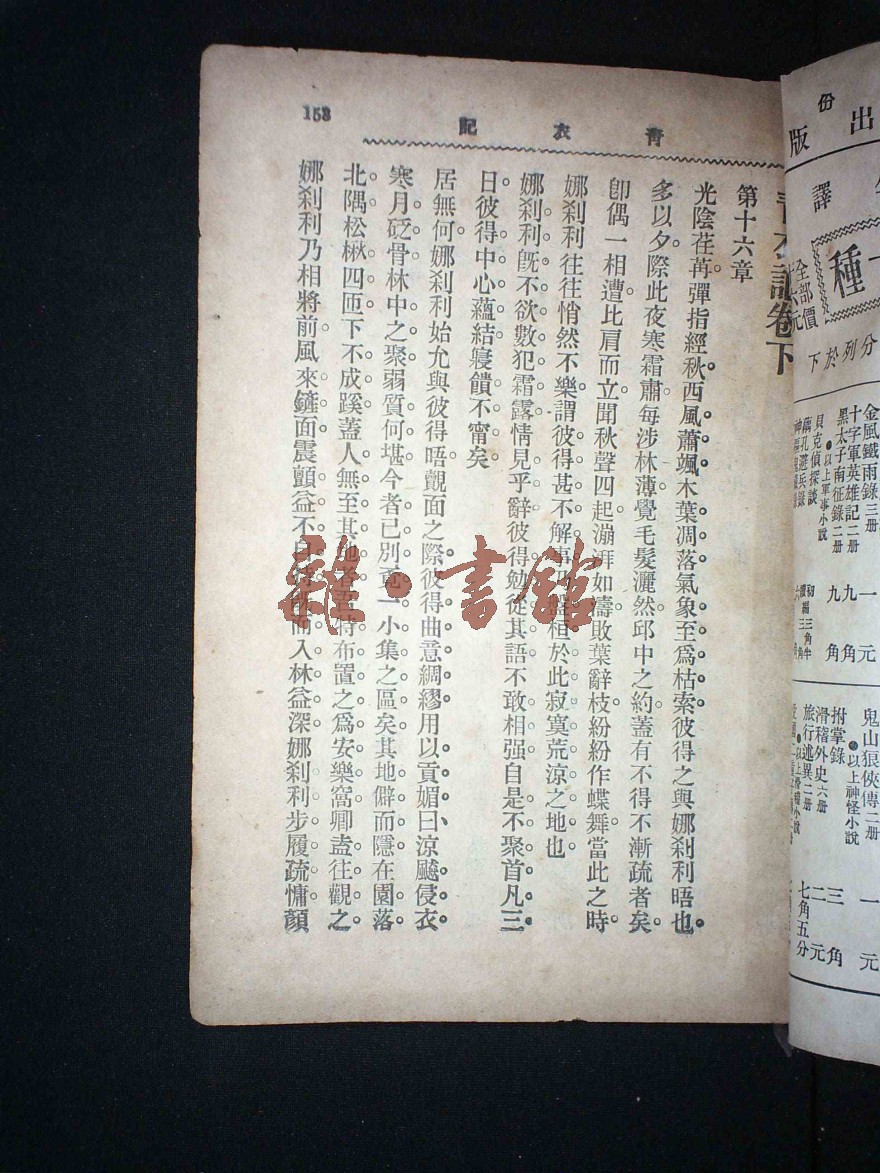 153
青衣記
青衣記卷下
第十六章
光陰荏苒。彈指經秋。西風蕭颯。木葉凋落。氣象至爲枯索。彼得之與娜剎利晤也。
多以夕際。此夜寒霜肅。每涉林薄。覺毛髮灑然。邱中之約。蓋有不得不漸疏者矣。
卽偶一相遭。比肩而立。聞秋聲四起。澎湃如濤。敗葉辭枝。紛紛作蝶舞。當此之時。
娜剎利往往悄然不樂。謂彼得甚不解事。盤桓於此寂寞荒涼之地也。
娜剎利旣不欲數犯霜露。情見乎辭。彼得勉從其語。不敢相强。自是不聚首凡三
日。彼得中心蘊結。寢饋不甯矣。
居無何。娜剎利始允與彼得晤。覿面之際。彼得曲意綢繆。用以貢媚。曰。涼飈侵衣。
寒月砭骨。林中之聚。弱質何堪。今者已別覓一小集之區矣。其地僻而隱。在園落
北隅。松楸四匝。下不成蹊。蓋人無至其地者。吾特布置之。爲安樂窩。卿盍往觀之。
娜剎利乃相將前。風來鏟面。震顫益不自持。旣而入林益深。娜剎利步履疏慵。顏
雜·書館
份
出版
譯
種
全部價
元
分列於下
金風鐵雨錄三册 一元
十字軍英雄記二册 九角
黑太子南征錄二册 九角
●以上軍事小說
貝克偵探談 初續編三角半
藕孔避兵錄
鬼山狼俠傳二册 一元
●以上神怪小說
拊掌錄 三角
滑稽外史六册 二元
旅行述異二册 七角五分